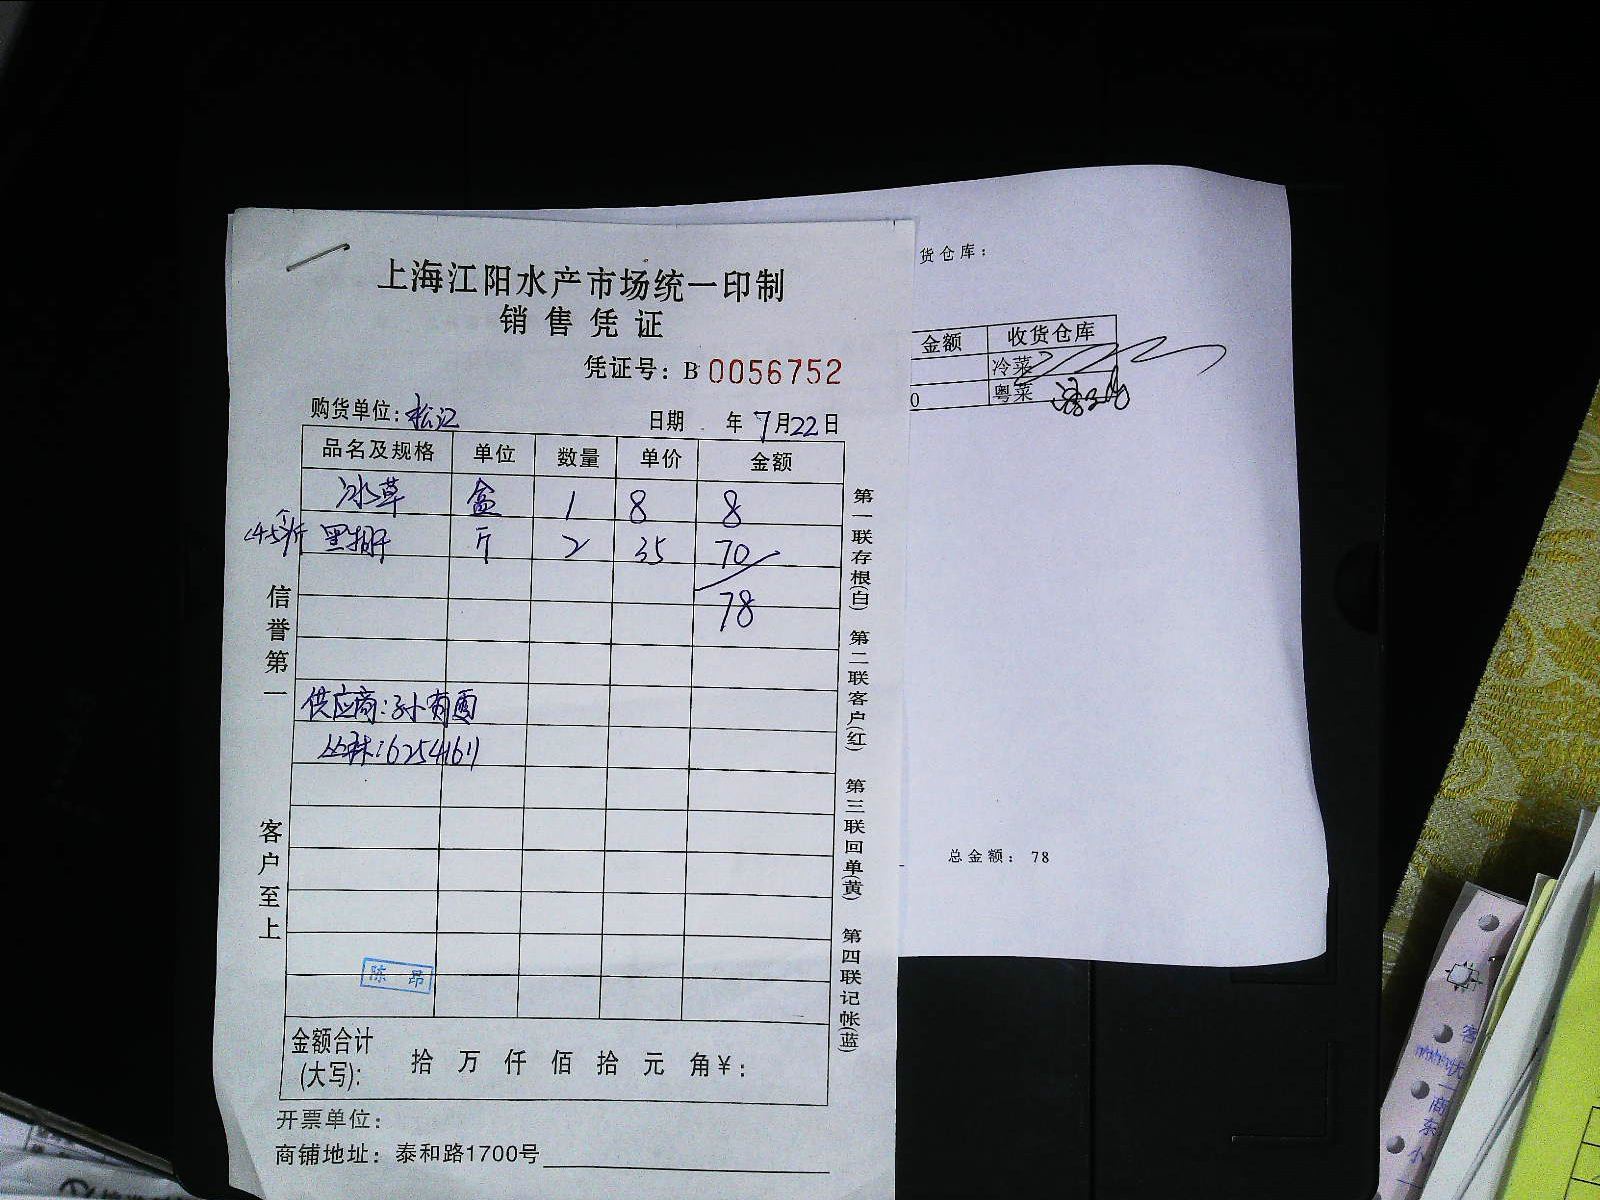 上海江阳水产市场统一印制
销售凭证
凭证号：B 0056752
购货单位：松江 日期 年7月22日
品名及规格 单位 数量 单价 金额
冰草 盒 1 8 8
黑虾 斤 2 35 70
78
供应商：孙
6254161
陈昂
金额合计
(大写)： 拾 万 仟 佰 拾 元 角 ¥：
开票单位：
商铺地址：泰和路1700号
信誉第一
客户至上
第一联存根(白) 第二联客户(红) 第三联回单(黄) 第四联记帐(蓝)
货仓库：
金额 收货仓库
冷菜
0 粤菜
总金额：78
客
商
东
小